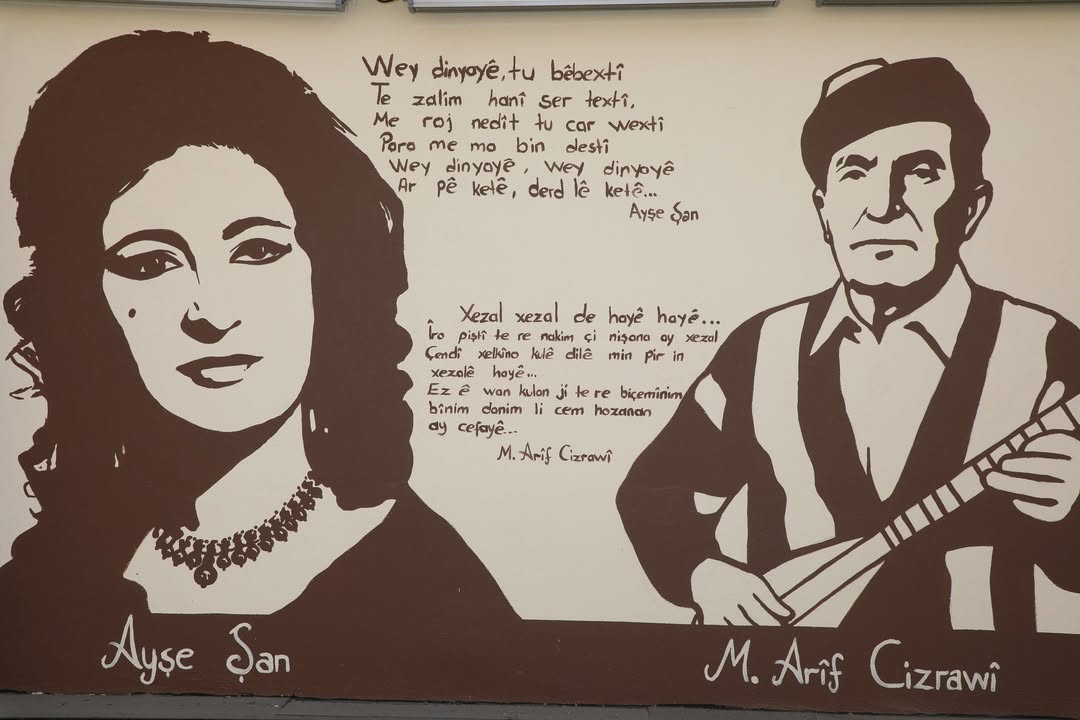 Wey dinyayê, tu bêbextî
Te zalim hanî ser textî,
Me roj nedît tu car wextî
Para me ma bin destî
Wey dinyayê, wey dinyayê
Ar pê ketê, derd lê ketê...
Ayşe Şan
Xezal xezal de hayê hayê...
Îro piştî te re nakim çi nişana ay xezal
Çendî xelkîno kulê dilê min pir in
xezalê hayê...
Ez ê wan kulan ji te re biçemînim
bînim danim li cem hozanan
ay cefayê...
M. Arîf Cizrawî
Ayşe Şan
M. Arîf Cizrawî